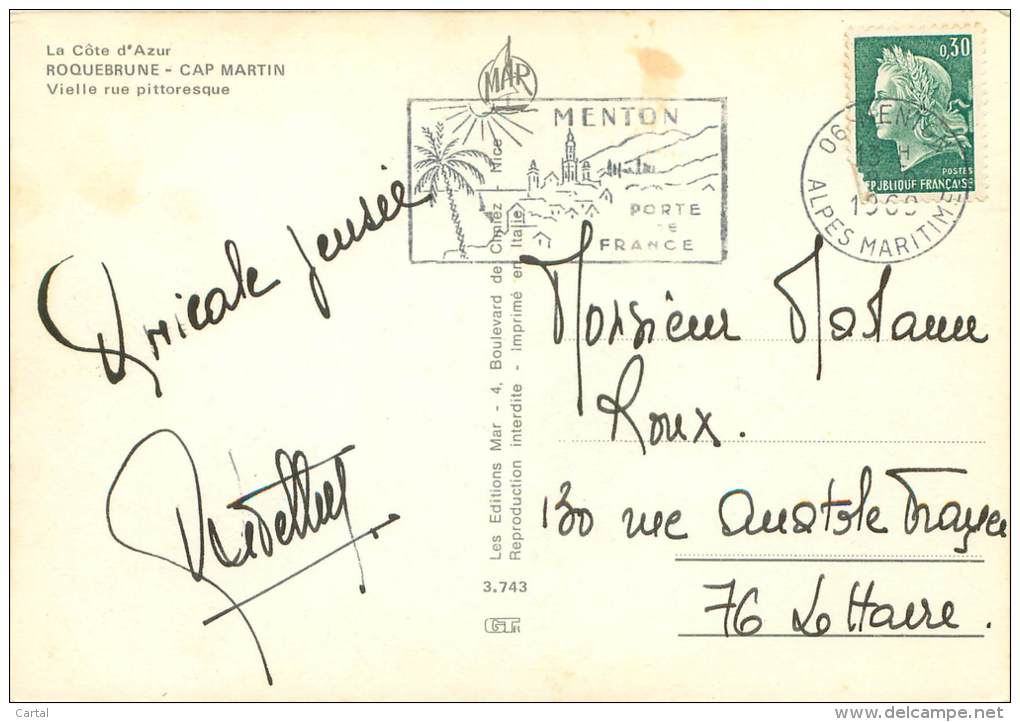 La Côte d'Azur
ROQUEBRUNE - CAP MARTIN
Vielle rue pittoresque
MAR
MENTON
PORTE
DE
FRANCE
0,30
POSTES
REPUBLIQUE FRANCAISE
06 MENTON
13 H
1969
ALPES MARITIMES
Amicale pensée
Les Editions Mar - 4, Boulevard de Cimiez - Nice
Reproduction interdite - Imprimé en Italie
3.743
Monsieur Madame
Roux.
130 rue Anatole France
76 Le Havre.
Cartal
www.delcampe.net